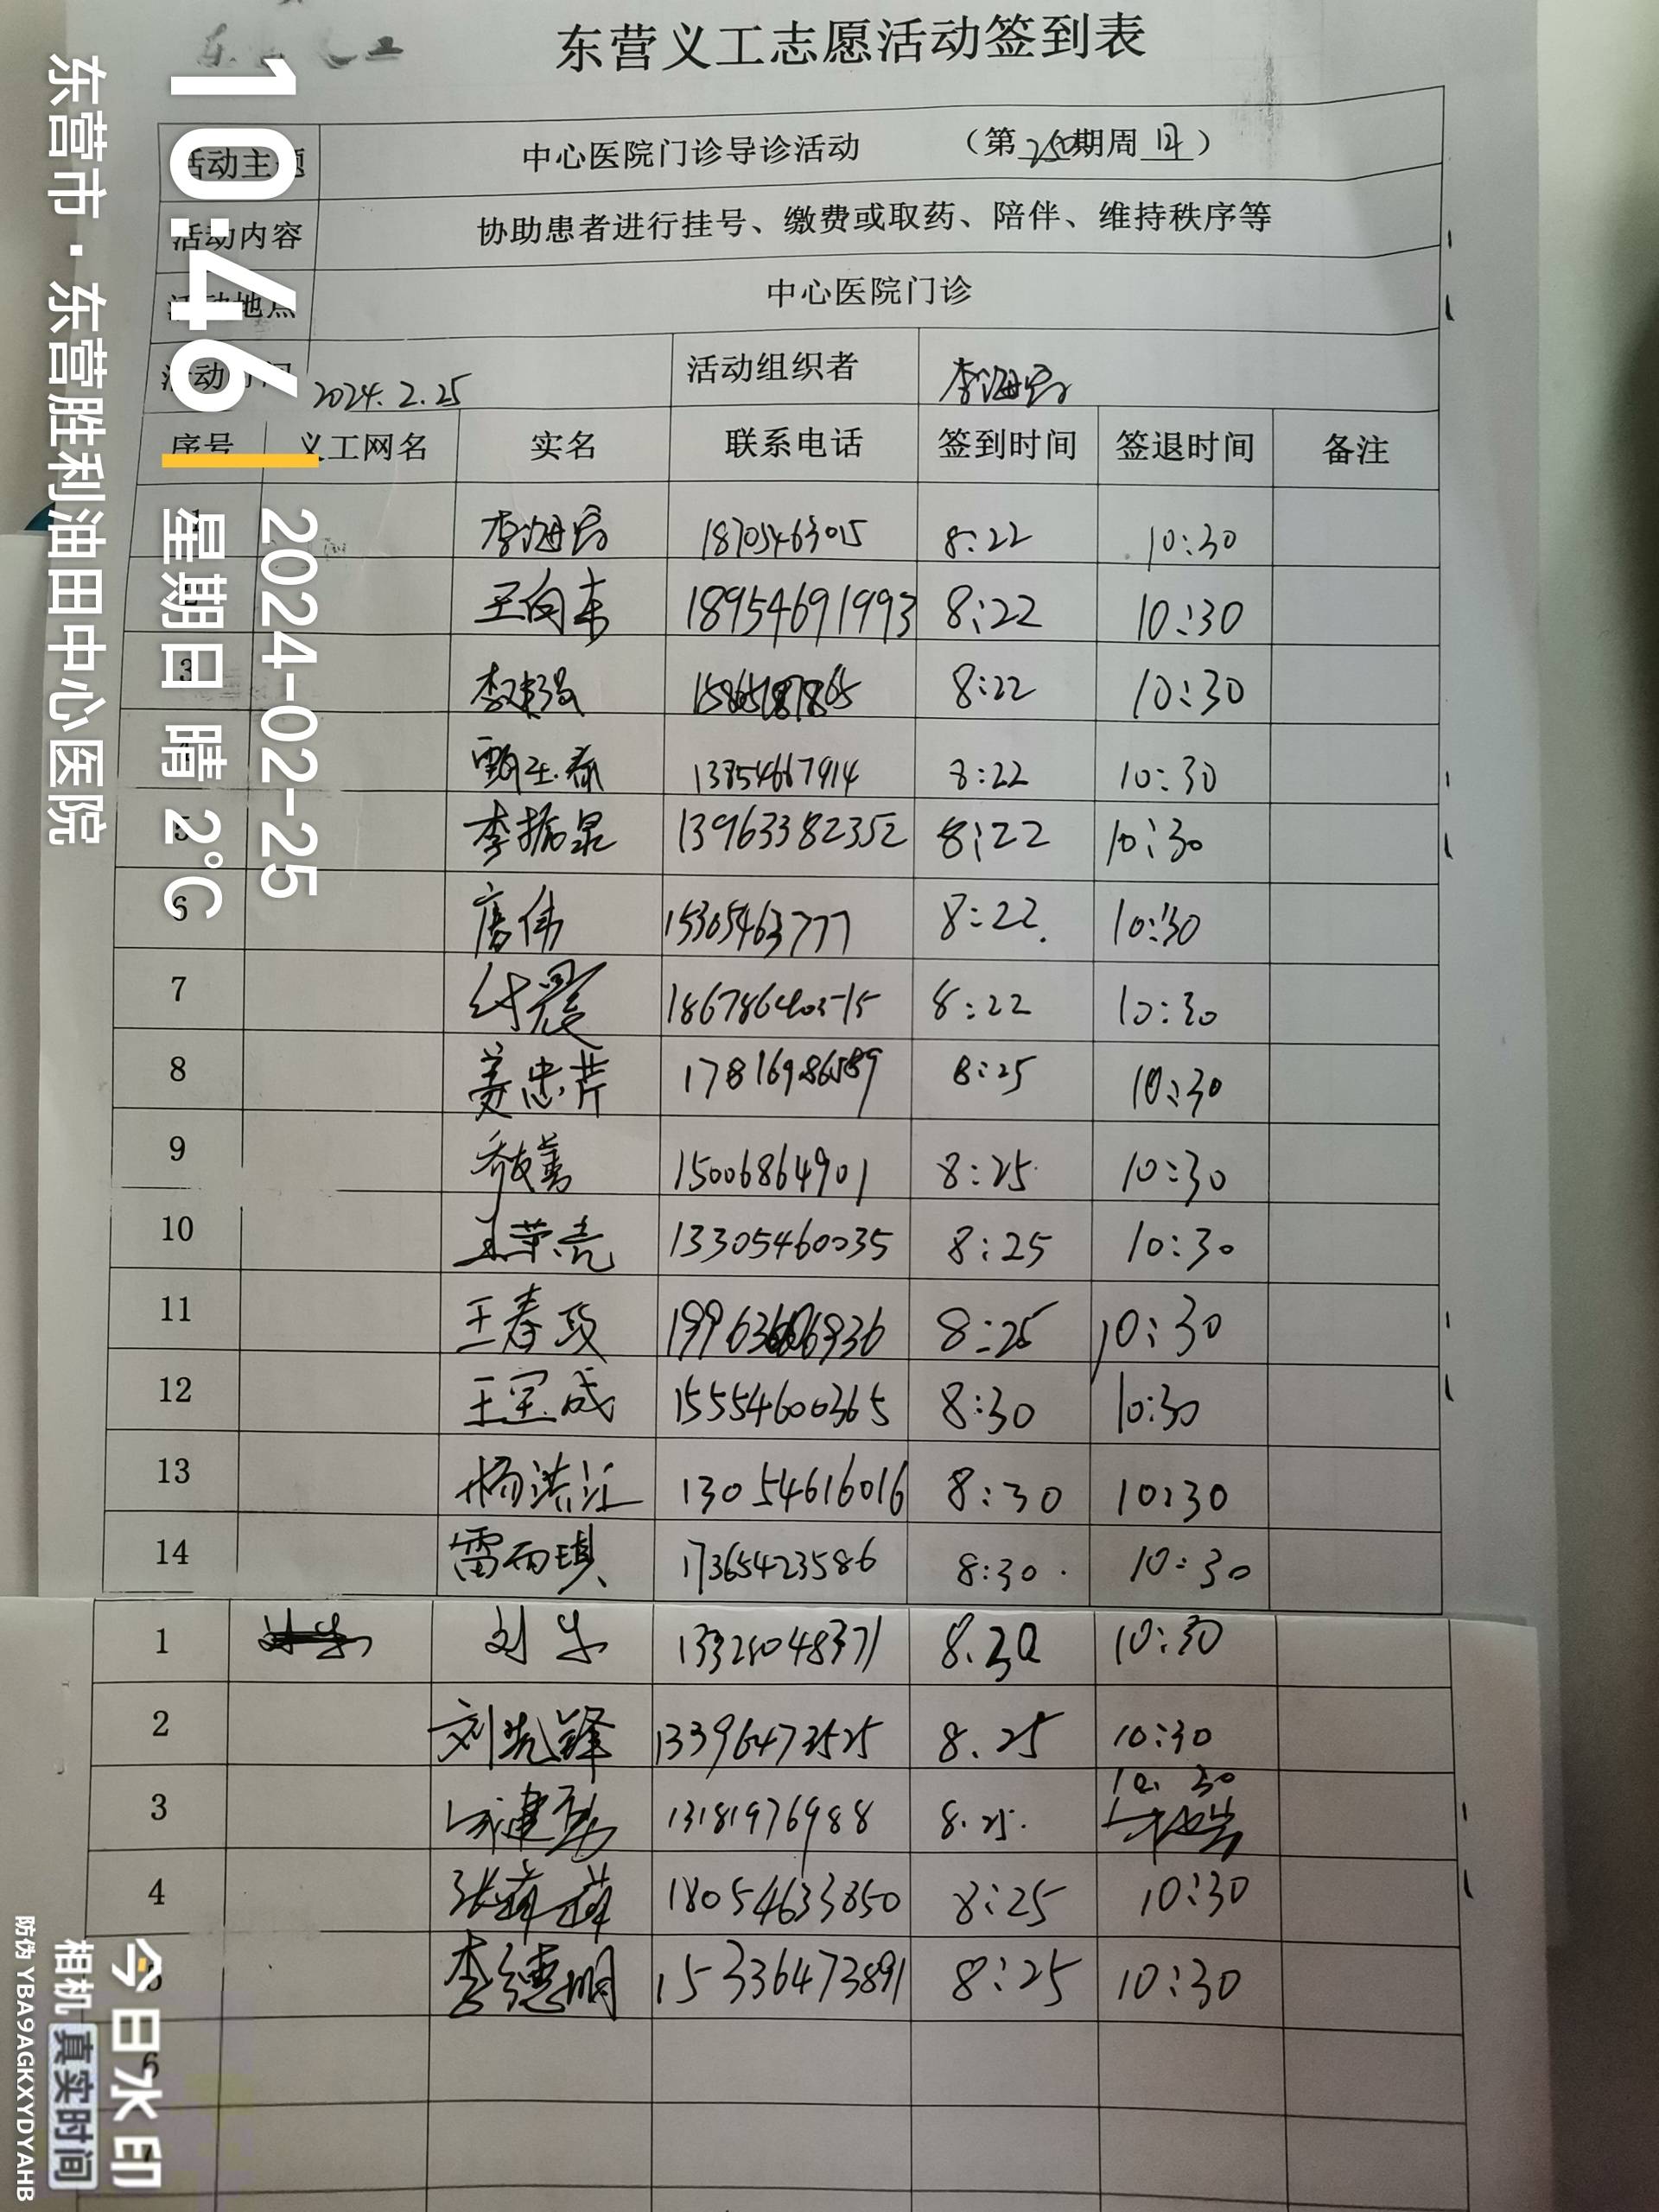 东营义工志愿活动签到表
活动主题 中心医院门诊导诊活动 (第250期周日)
活动内容 协助患者进行挂号、缴费或取药、陪伴、维持秩序等
活动地点 中心医院门诊
活动时间 2024.2.25 活动组织者 李海宾
序号 义工网名 实名 联系电话 签到时间 签退时间 备注
1 李海宾 18705463015 8:22 10:30
2 王向东 18954691993 8:22 10:30
3 8:22 10:30
4 13854667914 8:22 10:30
5 李振泉 13963382352 8:22 10:30
6 唐伟 15305463777 8:22 10:30
7 付震 8:22 10:30
8 姜忠芹 17816986589 8:25 10:30
9 15006864901 8:25 10:30
10 王荣亮 13305460035 8:25 10:30
11 王春 8:25 10:30
12 王宝成 15554600365 8:30 10:30
13 杨洪江 13054616016 8:30 10:30
14 雷雨琪 17365423586 8:30 10:30
1 刘 8.30 10:30
2 刘先锋 13396473525 8.25 10:30
3 13181976988 8.25 10.30
4 张萍萍 18054633850 8:25 10:30
5 李德明 15336473891 8:25 10:30
6
7
10:46
2024-02-25
星期日 晴 2℃
东营市·东营胜利油田中心医院
今日水印
相机 真实时间
防伪 YBA9AGKXYDYAHB